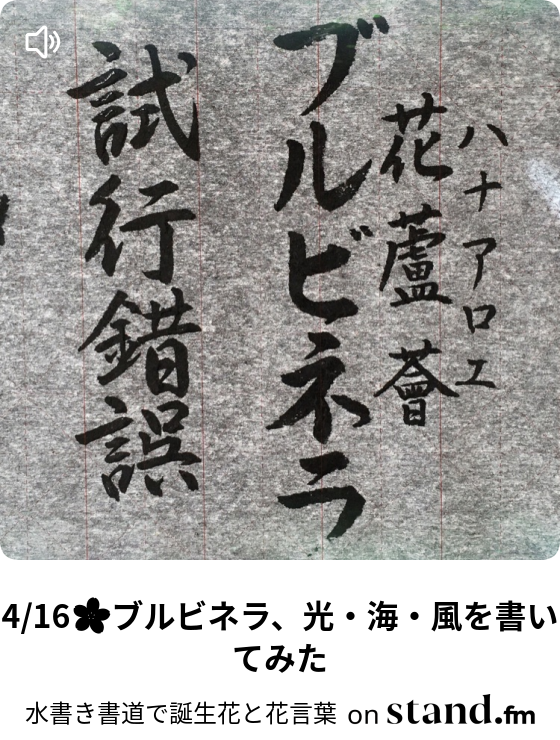 ハナアロエ
花蘆薈
ブルビネラ
試行錯誤
4/16✿ブルビネラ、光・海・風を書い
てみた
水書き書道で誕生花と花言葉 on stand.fm